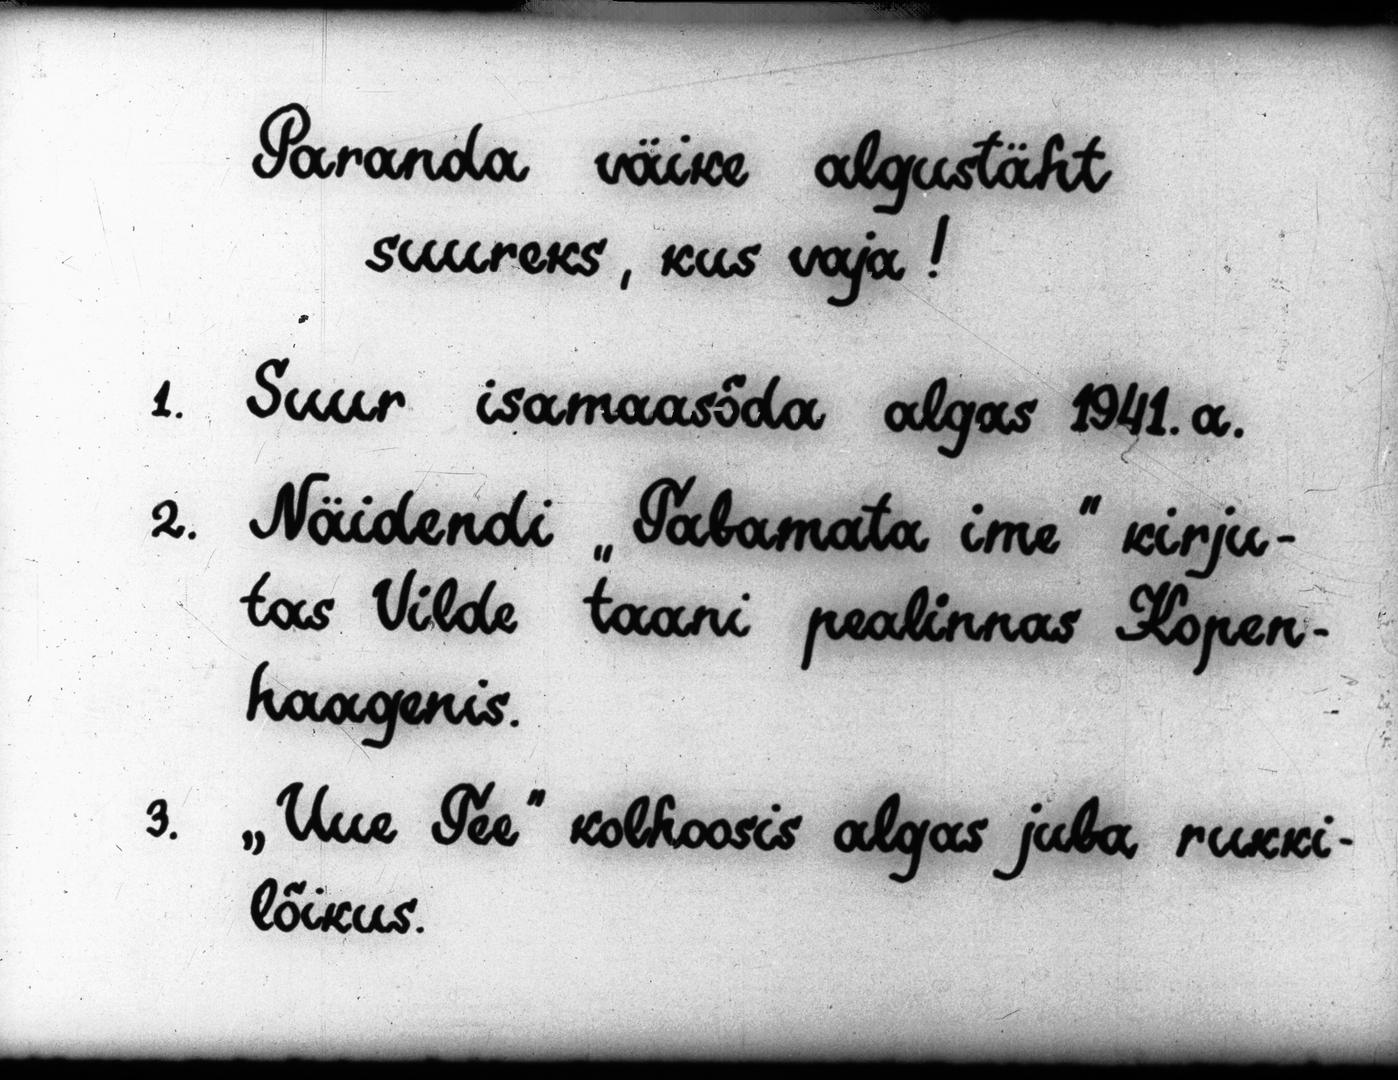 Paranda väike algustäht
suureks, kus vaja!
1. Suur isamaasõda algas 1941. a.
2. Näidendi „Tabamata ime” kirju-
tas Vilde taani pealinnas Kopen-
haagenis.
3. „Uue Tee” kolhoosis algas juba rukki-
lõikus.